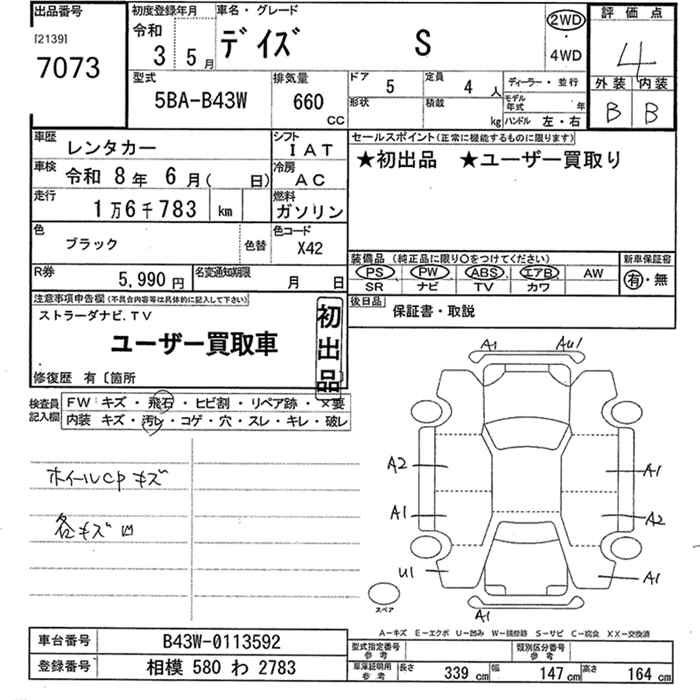 出品番号
[2139]
7073
初度登録年月
令和
3 5月
車名・グレード
デイズ S
2WD
・
4WD
評価点
4
外装 内装
B B
型式
5BA-B43W
排気量
660
CC
ドア 5
定員 4 人
形状
積載 kg
ディーラー・並行
モデル年式 年
ハンドル 左・右
車歴
レンタカー
シフト
IAT
車検
令和 8年 6月( 日)
冷房
AC
走行
1万6千783 km
燃料
ガソリン
色
ブラック
色替
色コード
X42
R券
5,990円
名変通知期限
月 日
セールスポイント(正常に機能するものに限ります)
★初出品 ★ユーザー買取り
装備品(純正品に限り○をつけてください)
PS PW ABS エアB AW
SR ナビ TV カワ
新車保証書
有・無
後日品
保証書・取説
注意事項申告欄(不具合内容等は具体的に記入して下さい)
ストラーダナビ.TV
ユーザー買取車
初出品
修復歴 有〔箇所
検査員記入欄
FW キズ・飛石・ヒビ割・リペア跡・×要
内装 キズ・汚レ・コゲ・穴・スレ・キレ・破レ
ホイールCPキズ
各キズ凹
A1 AU1
A2 A1
A1 A2
U1 A1
A1
スペア
A−キズ E−エクボ U−凹み W−補修跡 S−サビ C−腐食 XX−交換済
車台番号
B43W-0113592
登録番号
相模 580 わ 2783
型式指定番号
参考
類別区分番号
参考
車庫証明用
参考
長さ 339 cm
幅 147 cm
高さ 164 cm